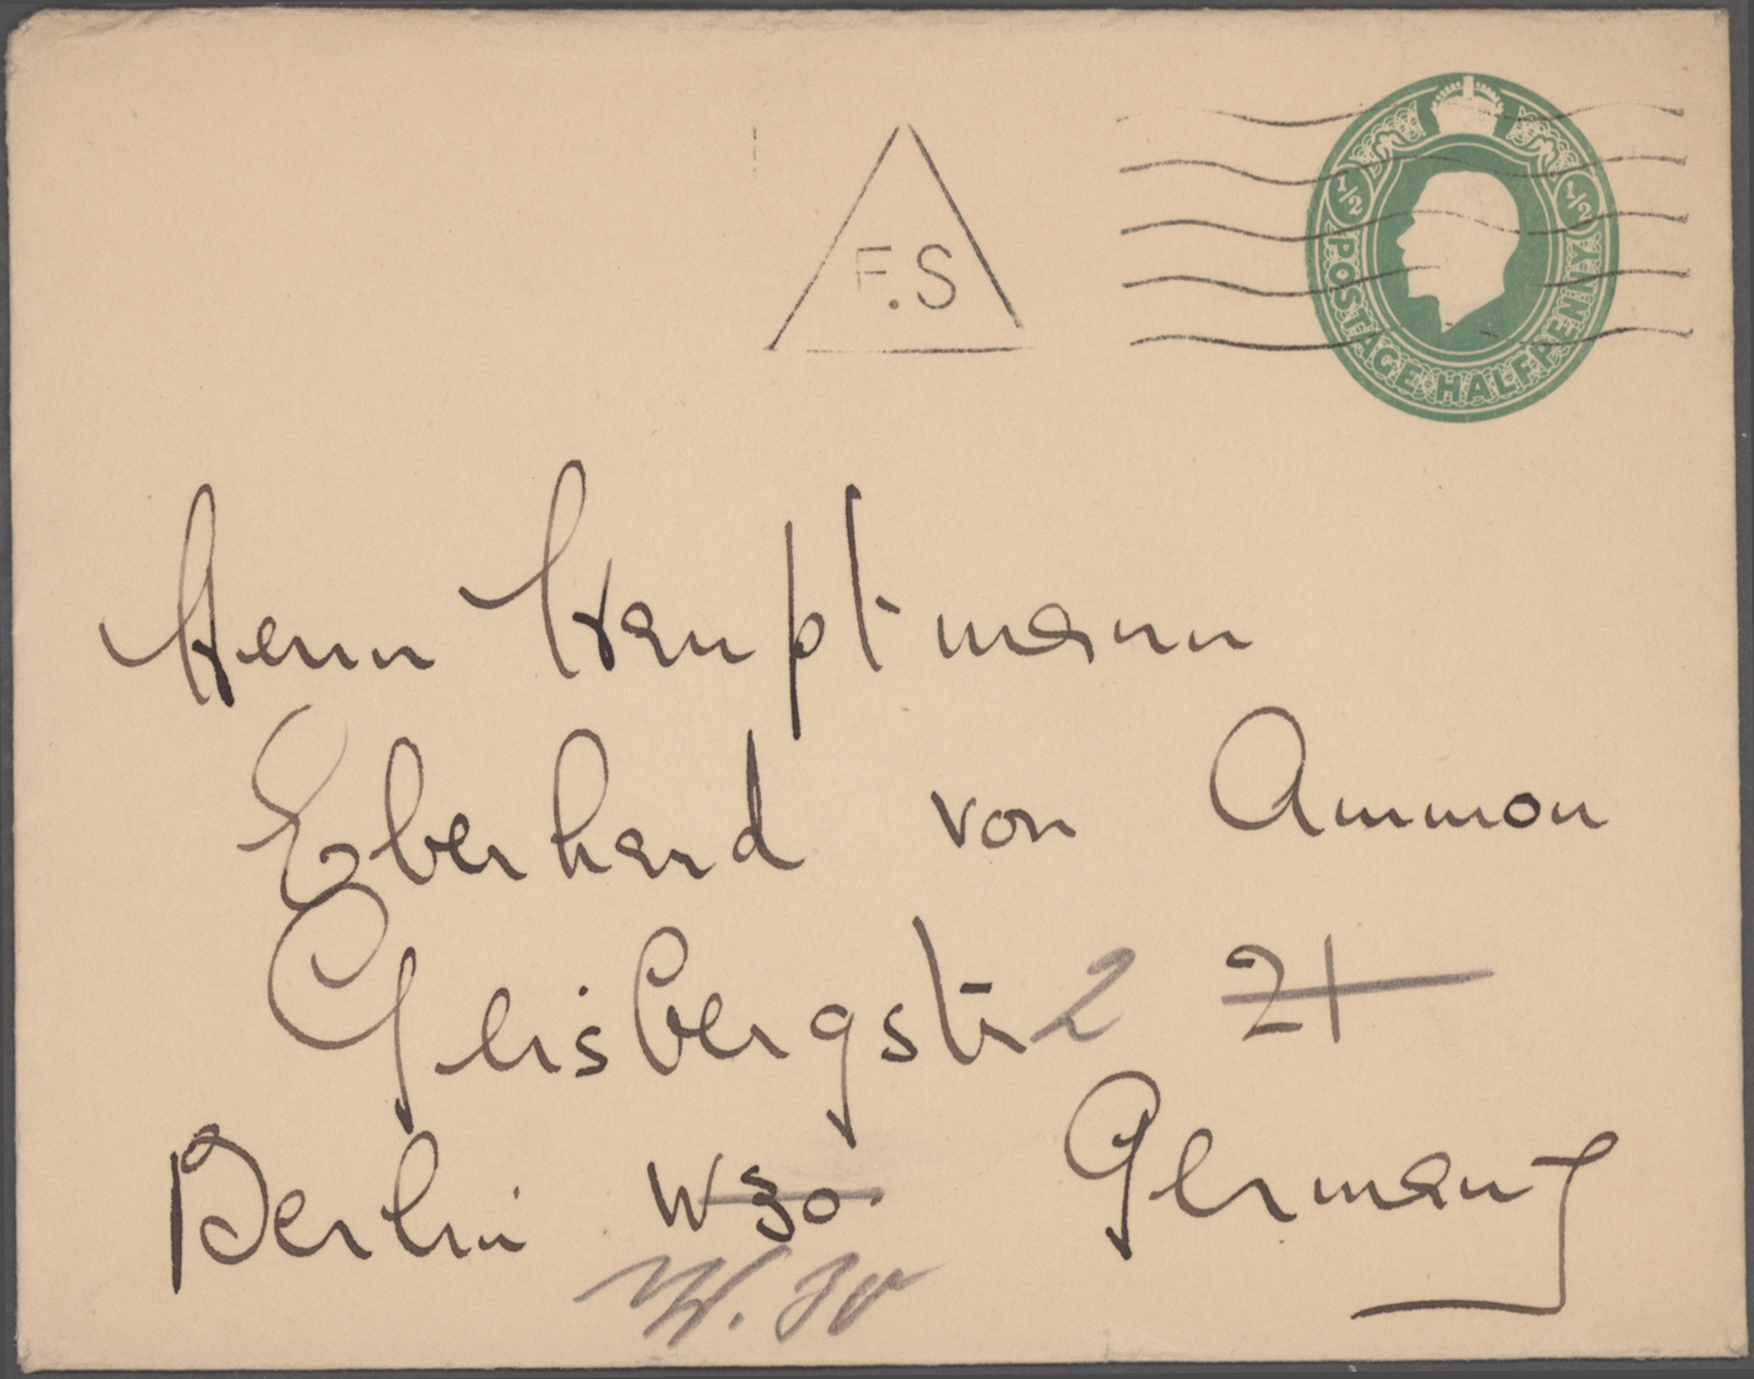 F.S
1/2 1/2
POSTAGE·HALFPENNY
Herrn Hauptmann
Eberhard von Ammon
Geisbergstr 2 21
Berlin W30 Germany
W. 30